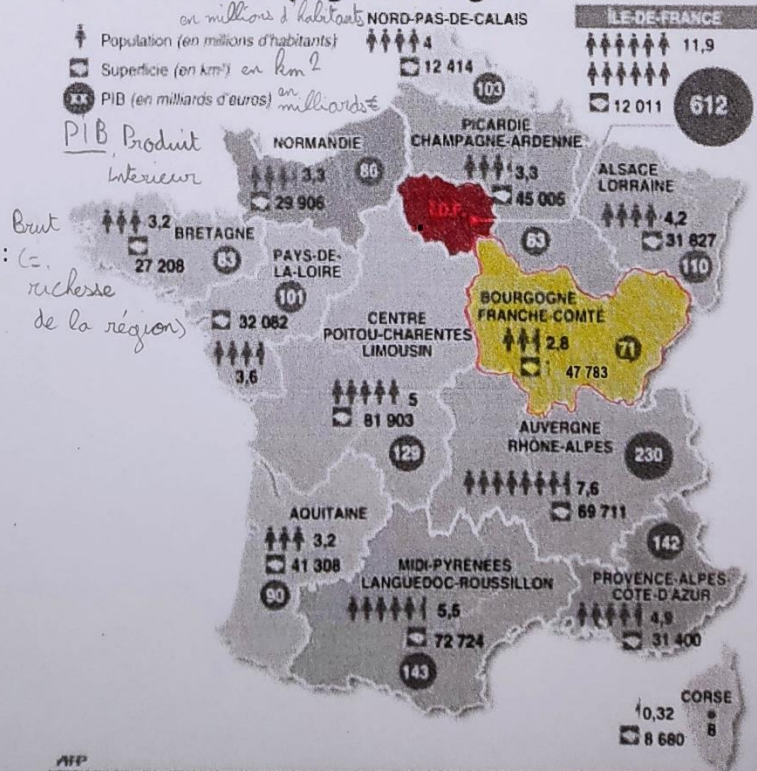 en millions d'habitants
Population (en millions d'habitants)
Superficie (en km²) en km2
XX PIB (en milliards d'euros) en milliards €
PIB Produit
Intérieur
Brut
: (=
richesse
de la région)
NORD-PAS-DE-CALAIS
4
12 414
103
ÎLE-DE-FRANCE
11,9
12 011
612
NORMANDIE
3,3
29 906
86
PICARDIE
CHAMPAGNE-ARDENNE
3,3
45 005
83
ALSACE
LORRAINE
4,2
31 827
110
BRETAGNE
3,2
27 208
83
PAYS-DE-
LA-LOIRE
101
32 082
3,6
CENTRE
POITOU-CHARENTES
LIMOUSIN
5
81 903
129
BOURGOGNE
FRANCHE-COMTÉ
2,8
71
47 783
AUVERGNE
RHÔNE-ALPES
230
7,6
69 711
AQUITAINE
3,2
41 308
90
MIDI-PYRÉNÉES
LANGUEDOC-ROUSSILLON
5,5
72 724
143
142
PROVENCE-ALPES-
CÔTE-D'AZUR
4,9
31 400
CORSE
0,32
8
8 680
AFP